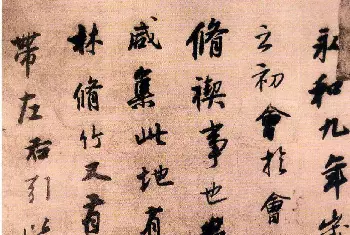 永和九年
之初會於會
脩禊事也
咸集此地有
林脩竹又有
帶左右引